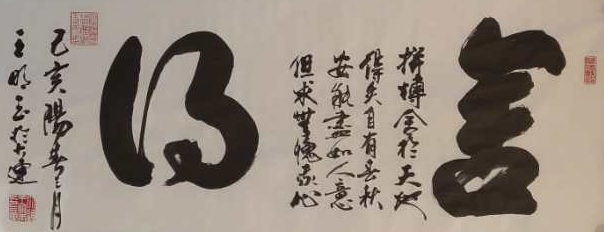 舍
拼搏全於天地
得失自有春秋
安能盡如人意
但求無愧我心
得
己亥陽春三月
王明玉於大連